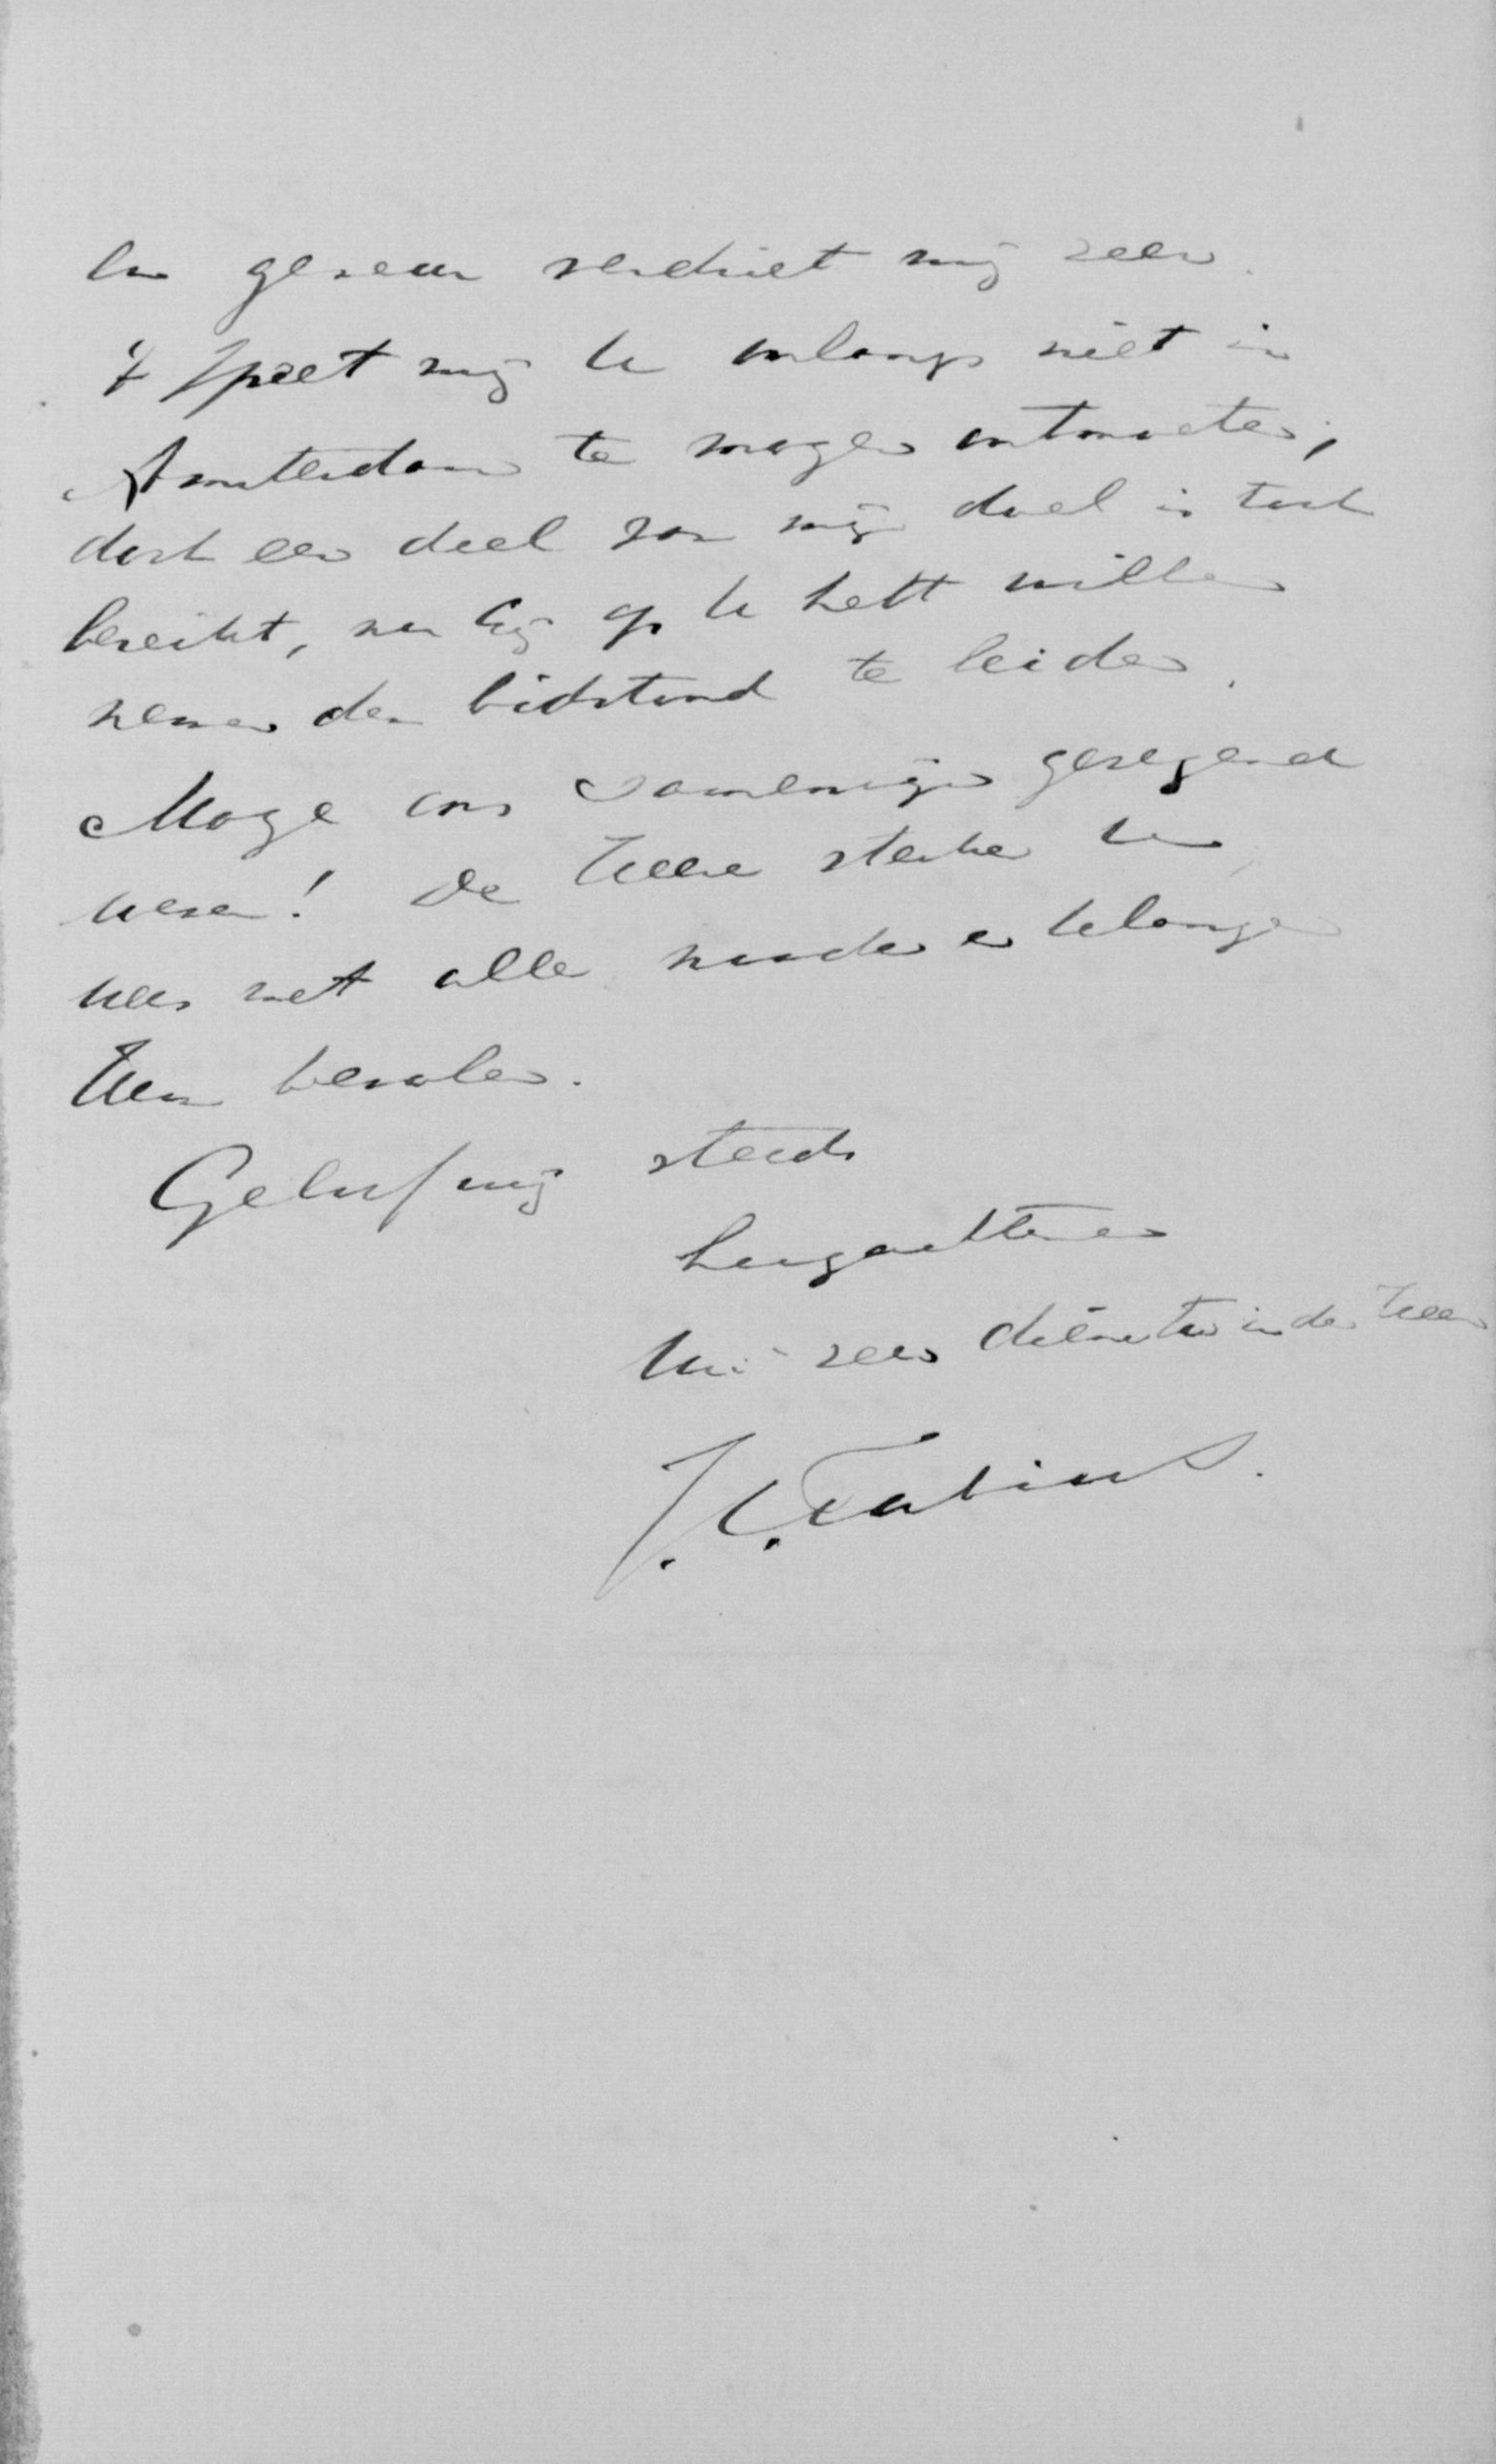 Uw geween verdriet mij zeer.
't Speet mij U onlangs niet in
Amsterdam te mogen ontmoeten,
doch een deel van mijn doel is toch
bereikt, nu Gij op U hebt willen
nemen den bidstond te leiden.
Moge ons samenzijn gezegend
wezen! De Heere sterke U en
wees met alle nooden en belangen
Hem bevolen.
Geloof mij steeds
hoogachtend
Uw zeer dienstw in den Heer
J. C. Fabius.